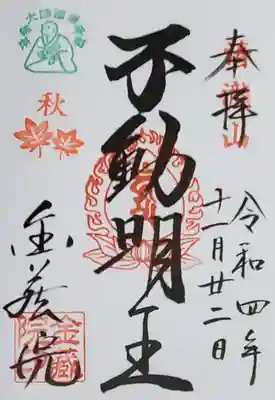 奉拝
令和四年
十一月廿二日
不動明王
秋
金蔵院
金蔵院